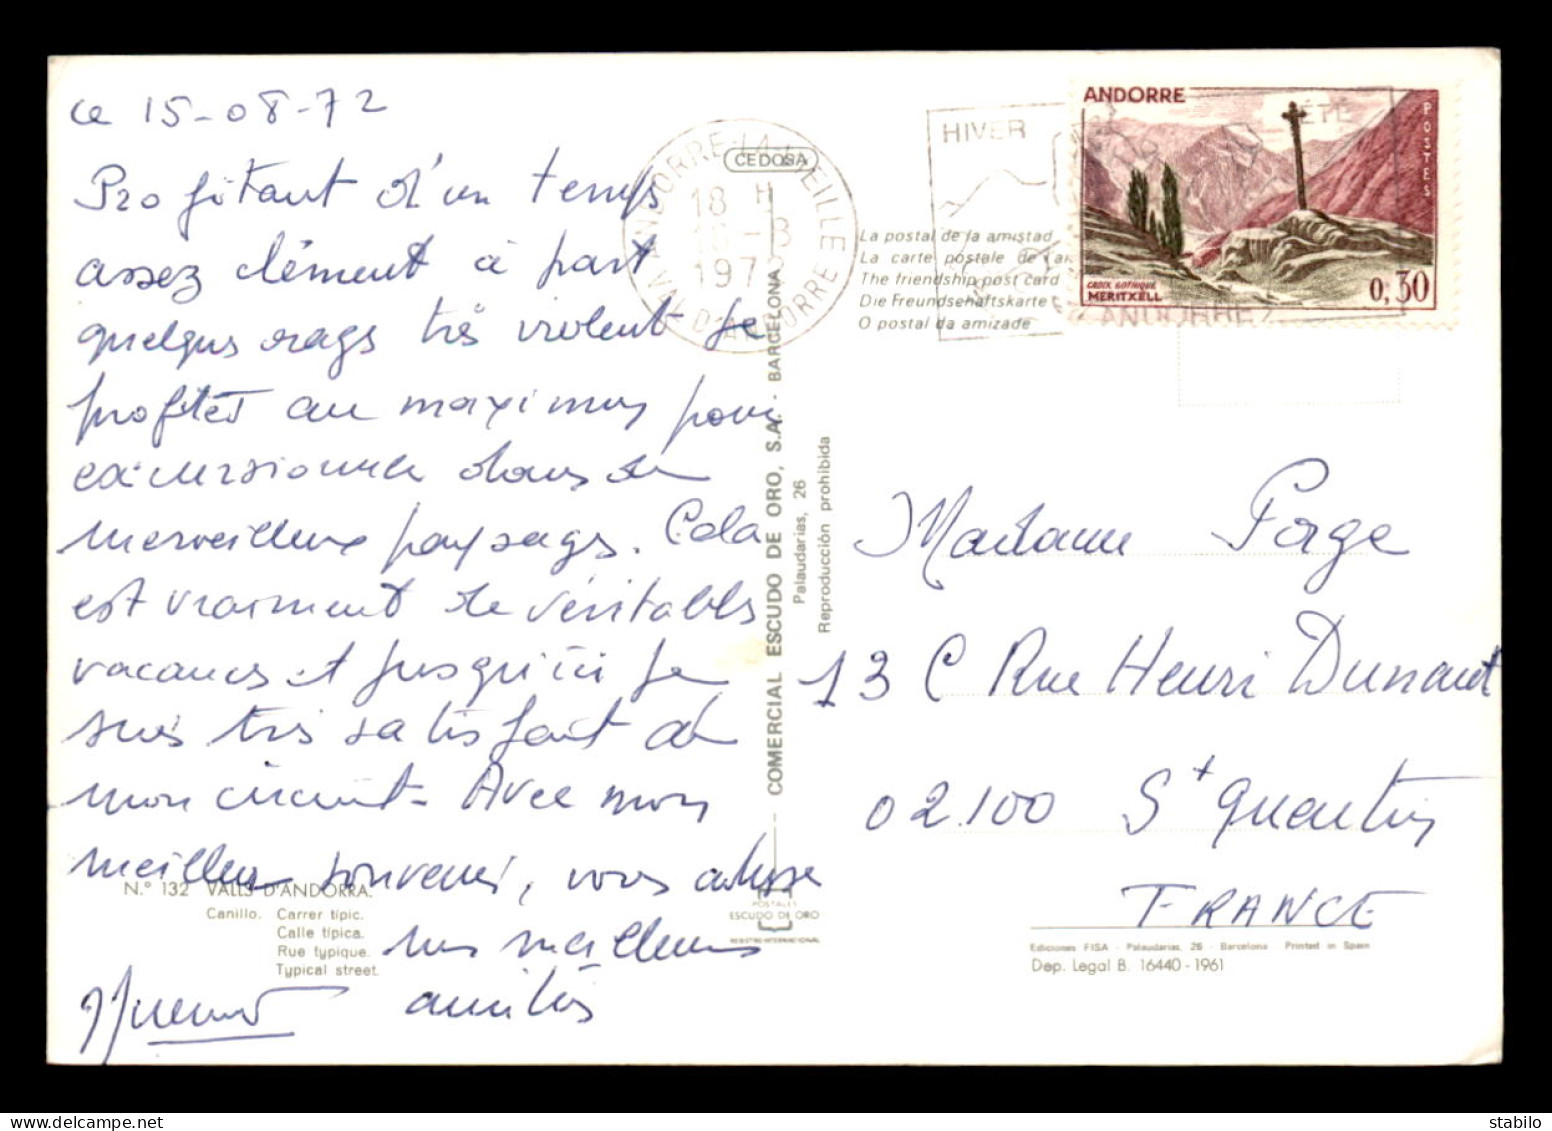 ce 15-08-72
Profitant d'un temps
assez clément à part
quelques orages très violent je
profites au maximum pour
excursionner dans de
merveilleux paysages. Cela
est vraiment de véritables
vacances et jusqu'ici je
suis très satisfait de
mon circuit - Avec mon
meilleur souvenir, vous adresse
mes meilleures
amitiés
N.º 132 VALLS D'ANDORRA.
Canillo. Carrer típic.
Calle típica.
Rue typique.
Typical street.
CEDOSA
ANDORRE-LA-VIEILLE
18 H
16 - 8
197
VAL D'ANDORRE
COMERCIAL ESCUDO DE ORO, S.A. - BARCELONA
Palaudarias, 26
Reproducción prohibida
POSTALES
ESCUDO DE ORO
REGISTRO INTERNACIONAL
HIVER
ÉTÉ
ANDORRE
La postal de la amistad
La carte postale de l'a
The friendship post card
Die Freundschaftskarte
O postal da amizade
ANDORRE
POSTES
CROIX GOTHIQUE
MERITXELL
0,30
Madame Forge
13 C Rue Henri Dunant
02.100 St Quentin
FRANCE
Ediciones FISA - Palaudarias, 26 - Barcelona Printed in Spain
Dep. Legal B. 16440 - 1961
stamps-dz
delcampe.net